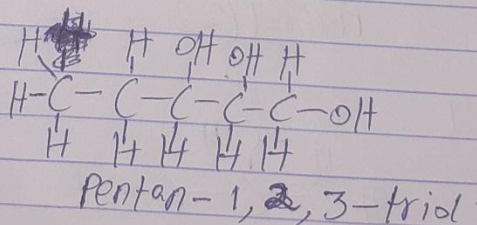 H H OH OH H
H-C-C-C-C-C-OH
H H H H H
Pentan-1,2,3-triol